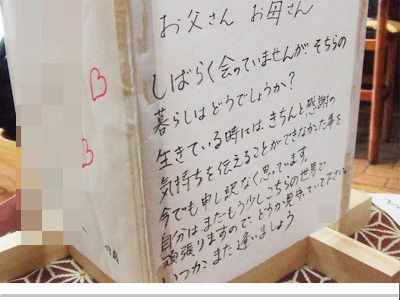 お父さん お母さん
しばらく会っていませんが、そちらの
暮らしはどうでしょうか?
生きている時には、きちんと感謝の
気持ちを伝えることができなかった事を
今でも申し訳なく思っています。
自分はまたもう少しこっちの世界で
頑張りますので、どうか見守っていて下さい。
いつか、また逢いましょう